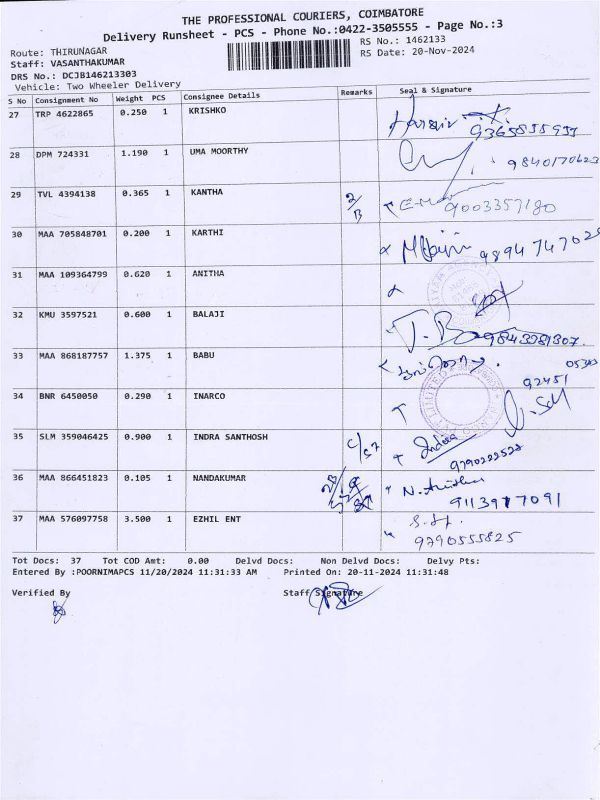 THE PROFESSIONAL COURIERS, COIMBATORE
Delivery Runsheet - PCS - Phone No.:0422-3505555 - Page No.:3
Route: THIRUNAGAR
RS No.: 1462133
Staff: VASANTHAKUMAR
RS Date: 20-Nov-2024
DRS No.: DCJB146213303
Vehicle: Two Wheeler Delivery
S No Consignment No Weight PCS Consignee Details Remarks Seal & Signature
27 TRP 4622865 0.250 1 KRISHKO
28 DPM 724331 1.190 1 UMA MOORTHY
9840170623
29 TVL 4394138 0.365 1 KANTHA
9003357180
30 MAA 705848701 0.200 1 KARTHI
31 MAA 109364799 0.620 1 ANITHA
32 KMU 3597521 0.600 1 BALAJI
33 MAA 868187757 1.375 1 BABU
92451
34 BNR 6450050 0.290 1 INARCO
35 SLM 359046425 0.900 1 INDRA SANTHOSH
36 MAA 866451823 0.105 1 NANDAKUMAR
9113977091
37 MAA 576097758 3.500 1 EZHIL ENT
9790555825
Tot Docs: 37 Tot COD Amt: 0.00 Delvd Docs: Non Delvd Docs: Delvy Pts:
Entered By :POORNIMAPCS 11/20/2024 11:31:33 AM Printed On: 20-11-2024 11:31:48
Verified By Staff Signature